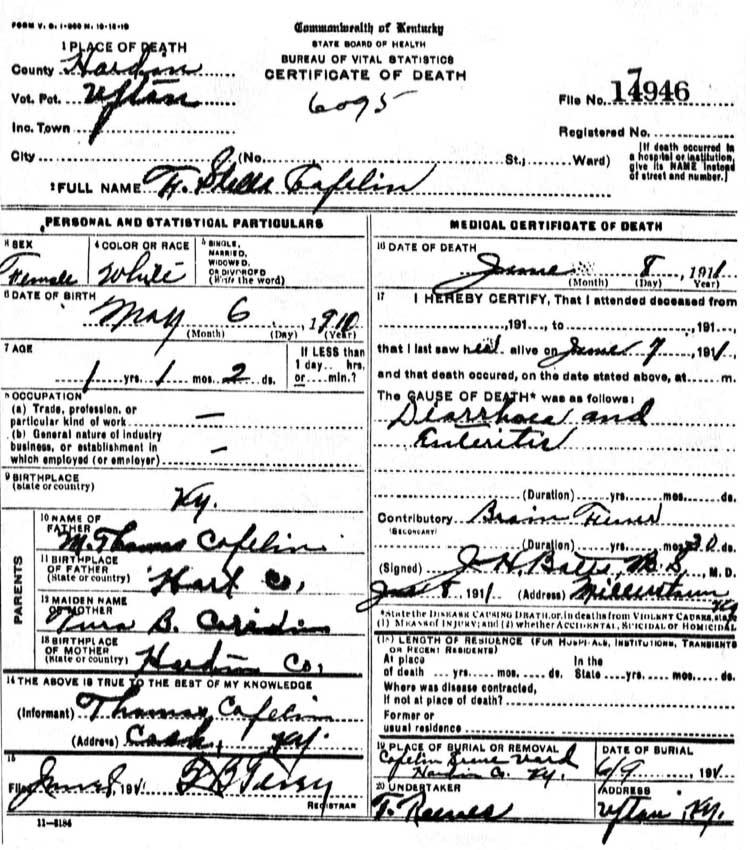 FORM V. S. 1-
Commonwealth of Kentucky
STATE BOARD OF HEALTH
BUREAU OF VITAL STATISTICS
CERTIFICATE OF DEATH
6095
File No. 14946
Registered No.
[If death occurred in a hospital or institution, give its NAME instead of street and number.]
1 PLACE OF DEATH
County Hardin
Vot. Pct. Upton
Inc. Town
City (No. St.; Ward)
2 FULL NAME Stella Cafelin
PERSONAL AND STATISTICAL PARTICULARS
3 SEX Female
4 COLOR OR RACE White
5 SINGLE, MARRIED, WIDOWED, OR DIVORCED (Write the word)
6 DATE OF BIRTH
May 6, 1910
(Month) (Day) (Year)
7 AGE
1 yrs. 1 mos. 2 ds.
If LESS than 1 day.. hrs. or.....min.?
8 OCCUPATION
(a) Trade, profession, or particular kind of work —
(b) General nature of industry business, or establishment in which employed (or employer) —
9 BIRTHPLACE (state or country) Ky.
PARENTS
10 NAME OF FATHER M. Thomas Cafelin
11 BIRTHPLACE OF FATHER (State or country) Hart Co,
12 MAIDEN NAME OF MOTHER B.
13 BIRTHPLACE OF MOTHER (State or country) Hardin Co,
14 THE ABOVE IS TRUE TO THE BEST OF MY KNOWLEDGE
(Informant) Thomas Cafelin
(Address) Cash, Ky.
15
Filed June 8, 1911 Terry
REGISTRAR
11-3184
MEDICAL CERTIFICATE OF DEATH
16 DATE OF DEATH
June 8, 1911
(Month) (Day) Year)
17 I HEREBY CERTIFY, That I attended deceased from
191..., to 191...,
that I last saw her alive on June 7, 1911,
and that death occured, on the date stated above, at m.
The CAUSE OF DEATH* was as follows:
Diarrhoea and
Enteritis
(Duration) yrs. mos. ds.
Contributory Brain Fever
(SECONDARY)
(Duration) yrs. mos. 30 ds.
(Signed) J. H. M. D.
8 1911 (Address) Millerstown Ky
*State the DISEASE CAUSING DEATH, or, in deaths from VIOLENT CAUSES, state (1) MEANS OF INJURY; and (2) whether ACCIDENTAL, SUICIDAL OR HOMICIDAL
(18) LENGTH OF RESIDENCE (FOR HOSPITALS, INSTITUTIONS, TRANSIENTS OR RECENT RESIDENTS)
At place of death yrs. mos. ds. In the State yrs. mos. ds.
Where was disease contracted, If not at place of death?
Former or usual residence
19 PLACE OF BURIAL OR REMOVAL
Cafelin Grave Yard
Hardin Co. Ky.
DATE OF BURIAL
6/9, 1911
20 UNDERTAKER
T. Reeves
ADDRESS
Upton, Ky.